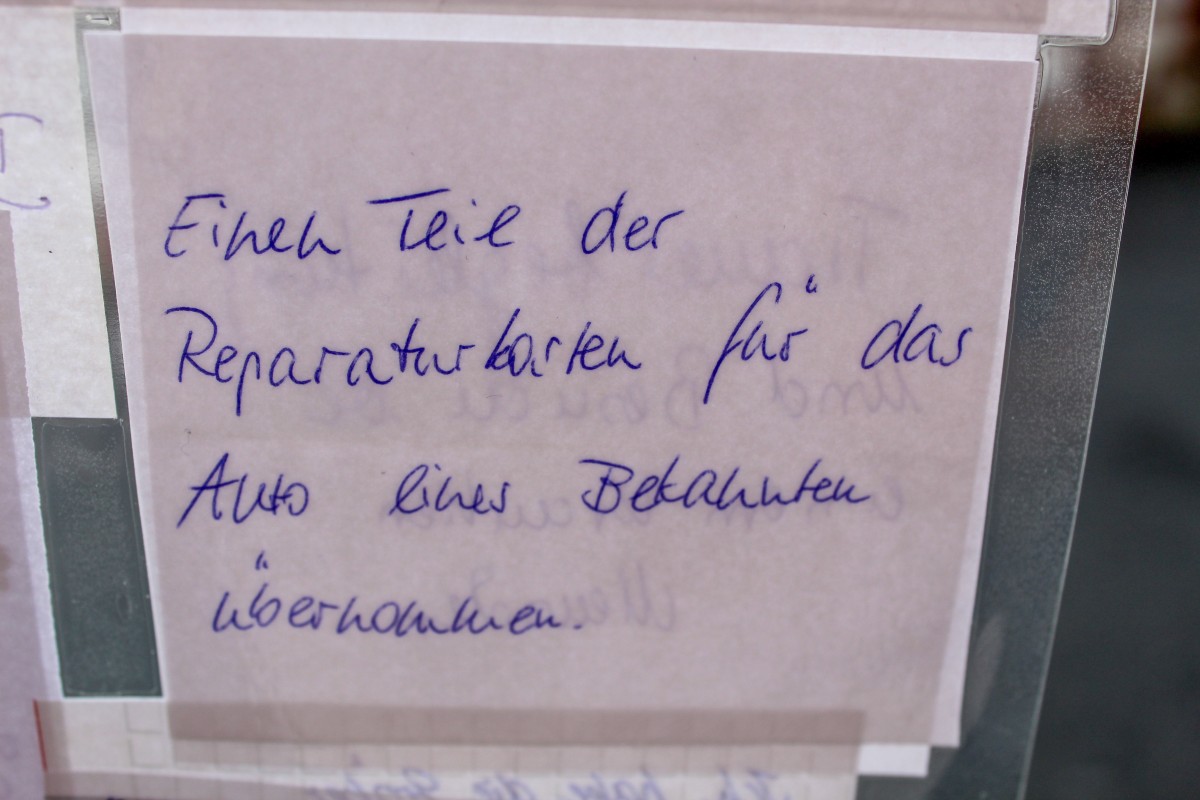 Einen Teil der
Reparaturkosten für das
Auto eines Bekannten
übernommen.
Ich habe die